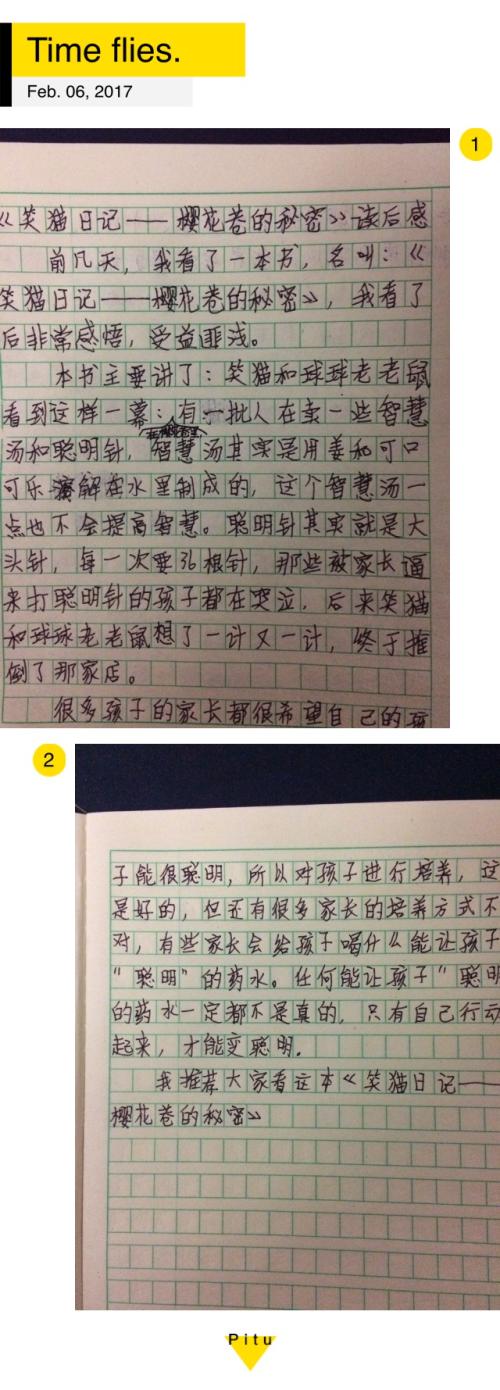 Time flies.
Feb. 06, 2017
1
《笑猫日记——樱花巷的秘密》读后感
前几天，我看了一本书，名叫：《
笑猫日记——樱花巷的秘密》，我看了
后非常感悟，受益匪浅。
本书主要讲了：笑猫和球球老老鼠
看到这样一幕：有一批人在卖一些智慧
汤和聪明针，智慧汤其实是用姜和可口
可乐溶解在水里制成的，这个智慧汤一
点也不会提高智慧。聪明针其实就是大
头针，每一次要36根针，那些被家长逼
来打聪明针的孩子都在哭泣，后来笑猫
和球球老老鼠想了一计又一计，终于推
倒了那家店。
很多孩子的家长都很希望自己的孩
2
子能很聪明，所以对孩子进行培养，这
是好的，但还有很多家长的培养方式不
对，有些家长会给孩子喝什么能让孩子
“聪明”的药水。任何能让孩子“聪明
的药水一定都不是真的，只有自己行动
起来，才能变聪明.
我推荐大家看这本《笑猫日记——
樱花巷的秘密》
Pitu